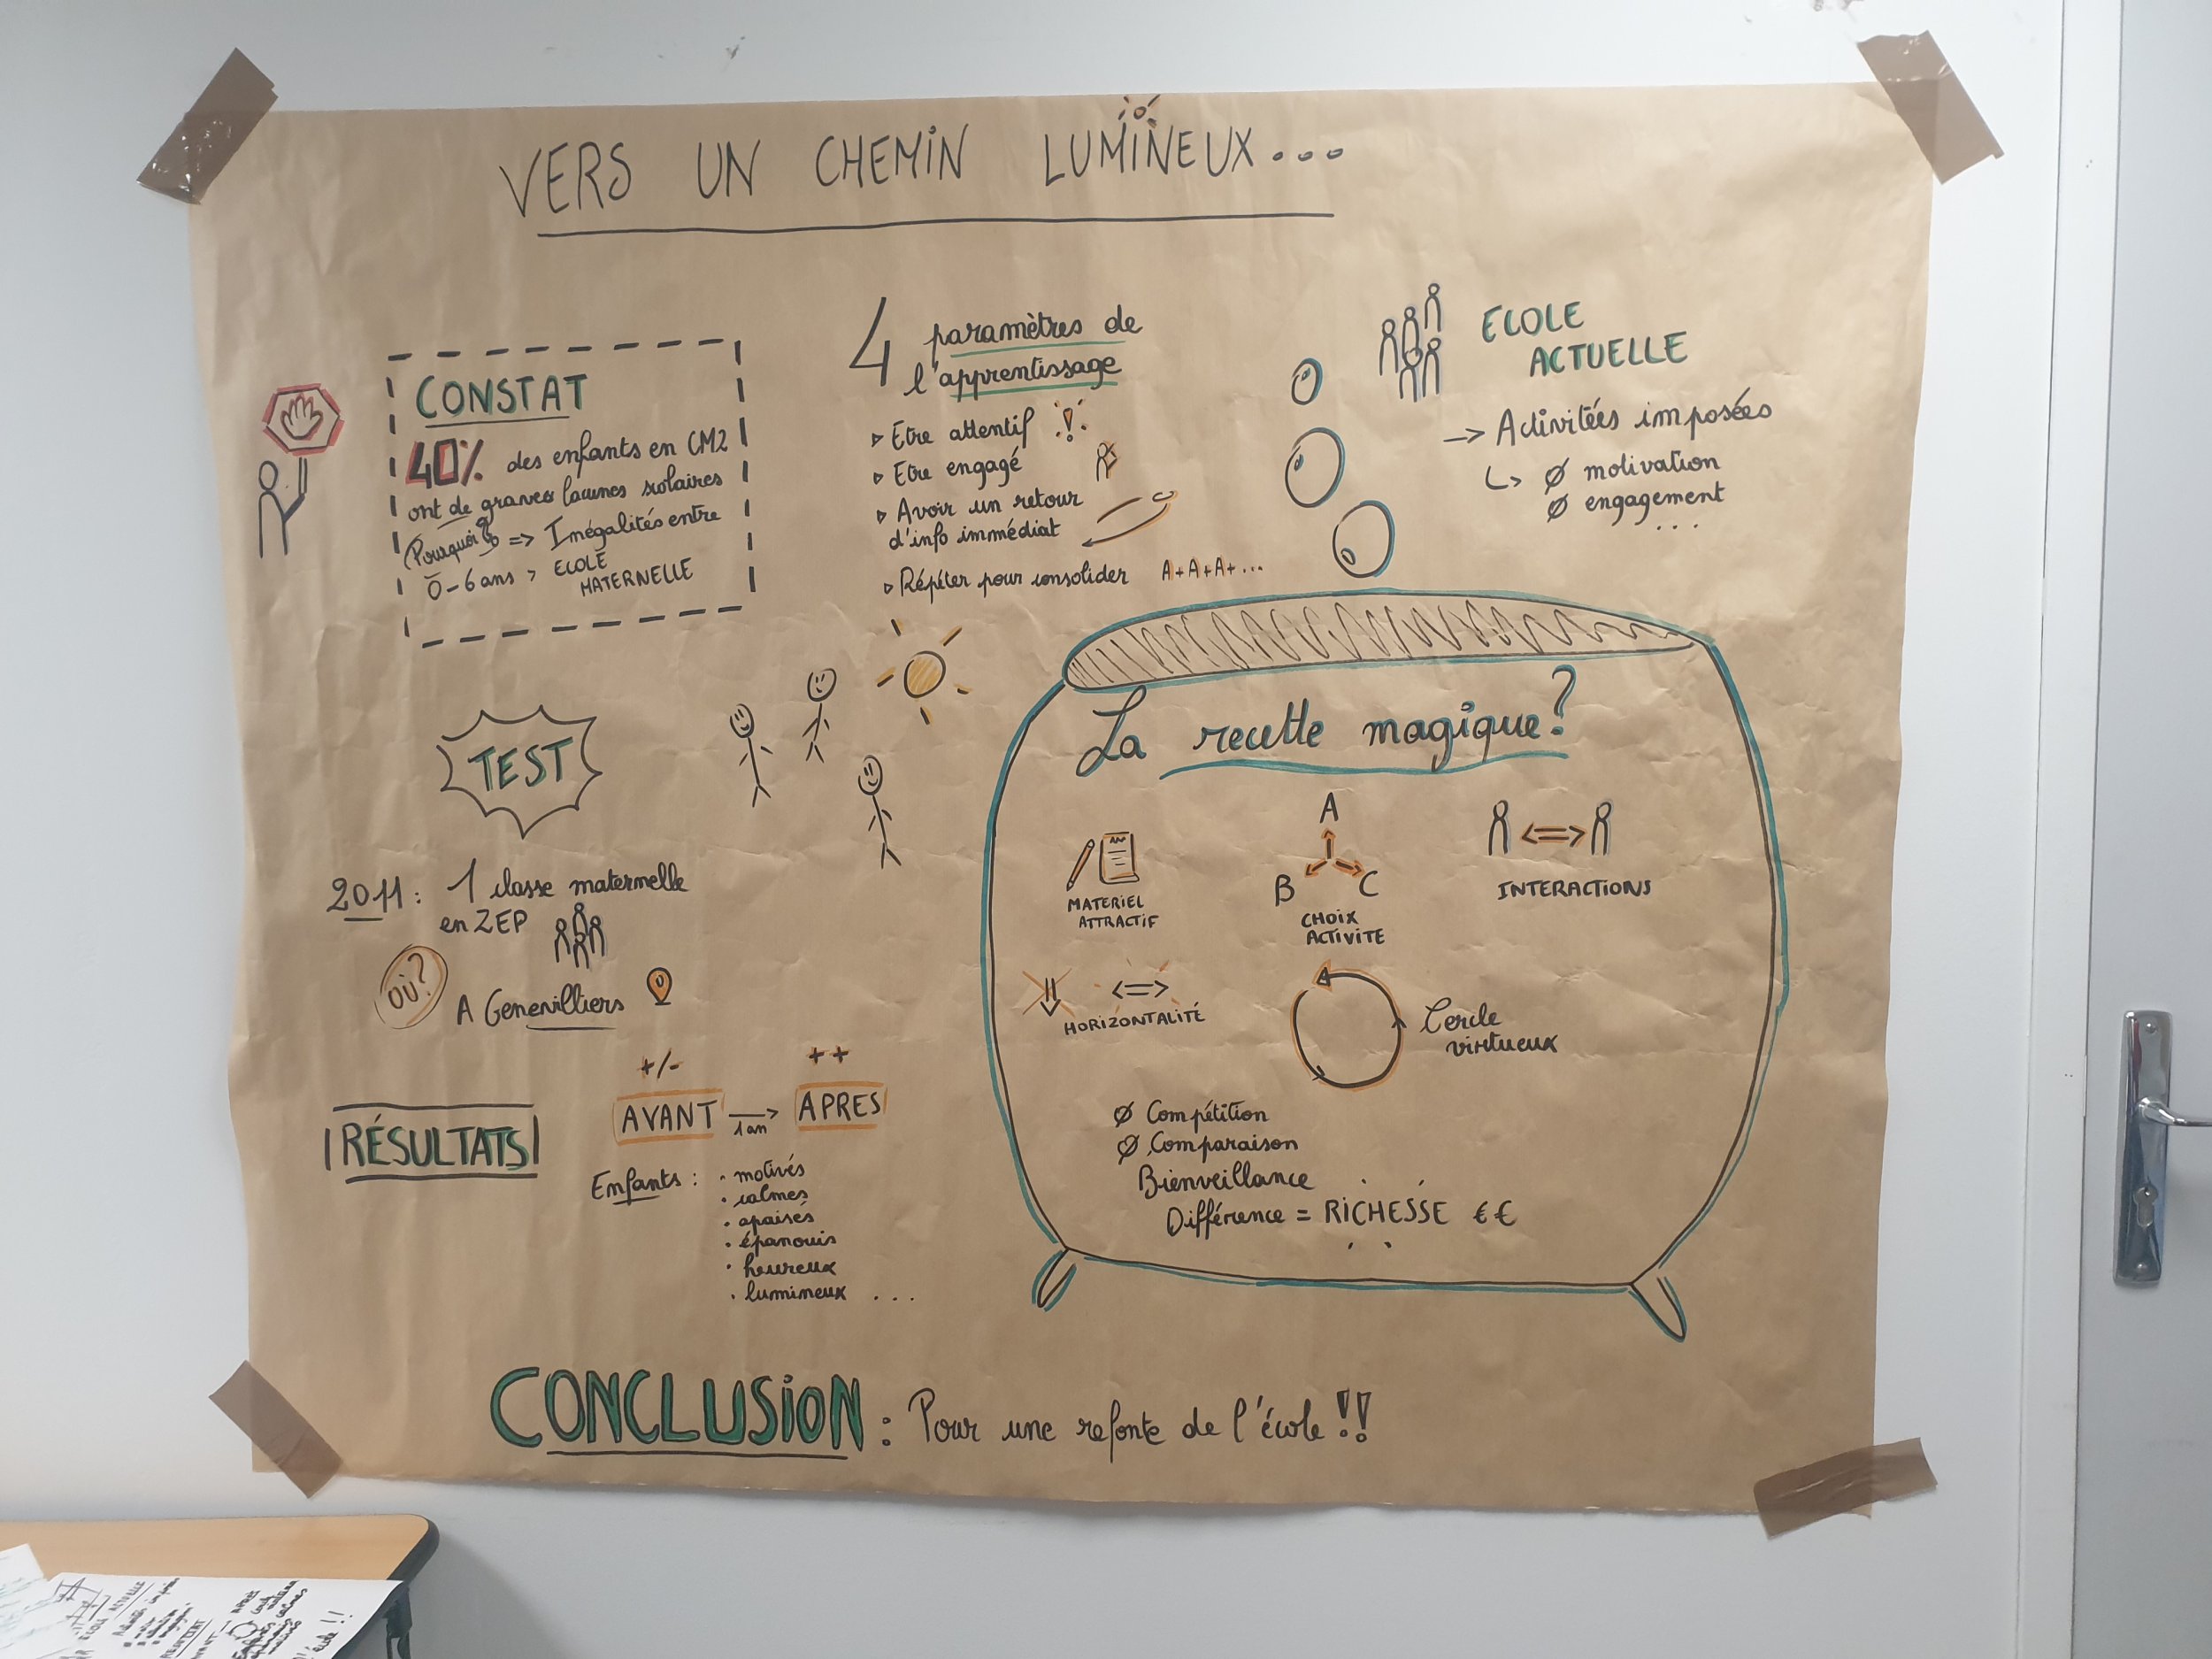 VERS UN CHEMIN LUMINEUX...
CONSTAT
40% des enfants en CM2
ont de graves lacunes scolaires
Pourquoi? => Inégalités entre
0-6 ans > ECOLE
MATERNELLE
4 paramètres de
l'apprentissage
Etre attentif !
Etre engagé
Avoir un retour
d'info immédiat
Répéter pour consolider A+A+A+...
ECOLE
ACTUELLE
-> Activitées imposées
Ø motivation
Ø engagement
...
TEST
2011 : 1 classe maternelle
en ZEP
OÙ?
A Genevilliers
RÉSULTATS
+/- ++
AVANT -> APRES
1 an
Enfants : • motivés
• calmes
• apaisés
• épanouis
• heureux
• lumineux ...
La recette magique?
MATERIEL
ATTRACTIF
A
B C
CHOIX
ACTIVITE
INTERACTIONS
HORIZONTALITÉ
Cercle
virtueux
Ø Compétition
Ø Comparaison
Bienveillance
Différence = RICHESSE €€
CONCLUSION : Pour une refonte de l'école !!
ECOLE ACTUELLE
l'école !!